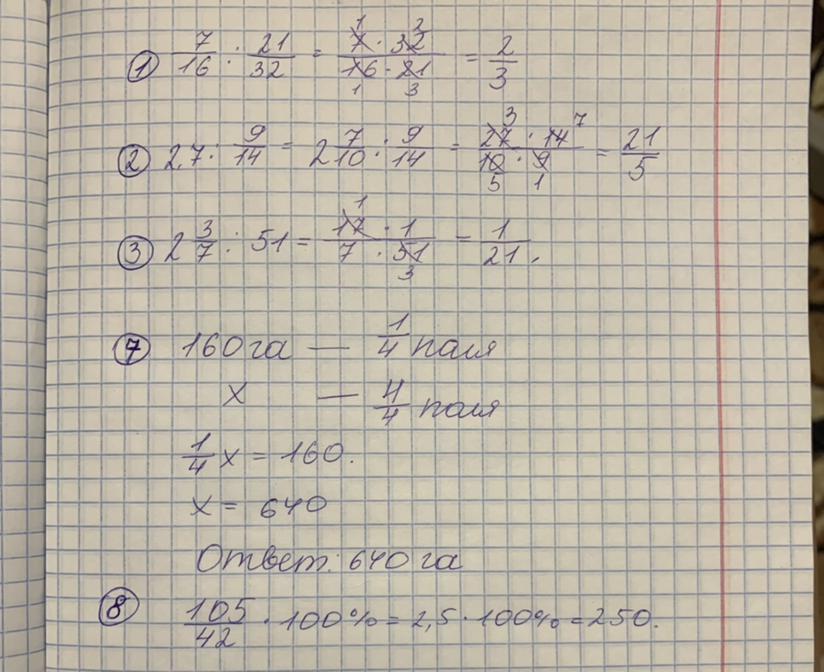 ① 7/16 : 21/32 = (7 · 32)/(16 · 21) = 2/3
② 2,7 : 9/14 = 2 7/10 : 9/14 = (27 · 14)/(10 · 9) = 21/5
③ 2 3/7 : 51 = (17 · 1)/(7 · 51) = 1/21.
⑦ 160 га — 1/4 поля
x — 4/4 поля
1/4 x = 160.
x = 640
Ответ: 640 га
⑧ 105/42 · 100% = 2,5 · 100% = 250.